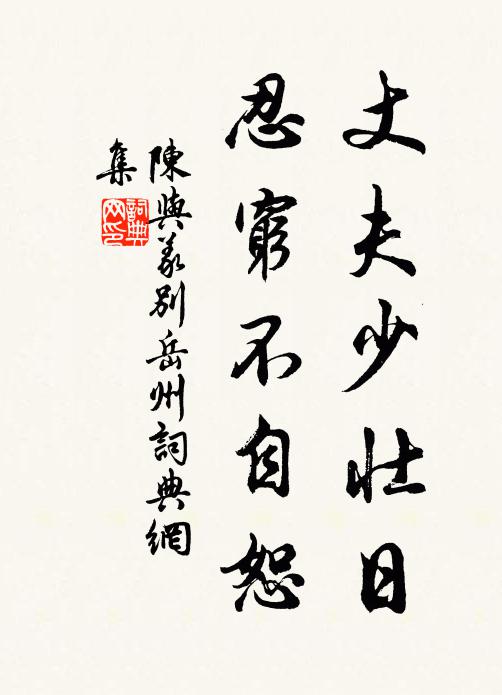 丈夫少壯日
忍窮不自恕
陳與義別岳州詞典網
集
詞典網印